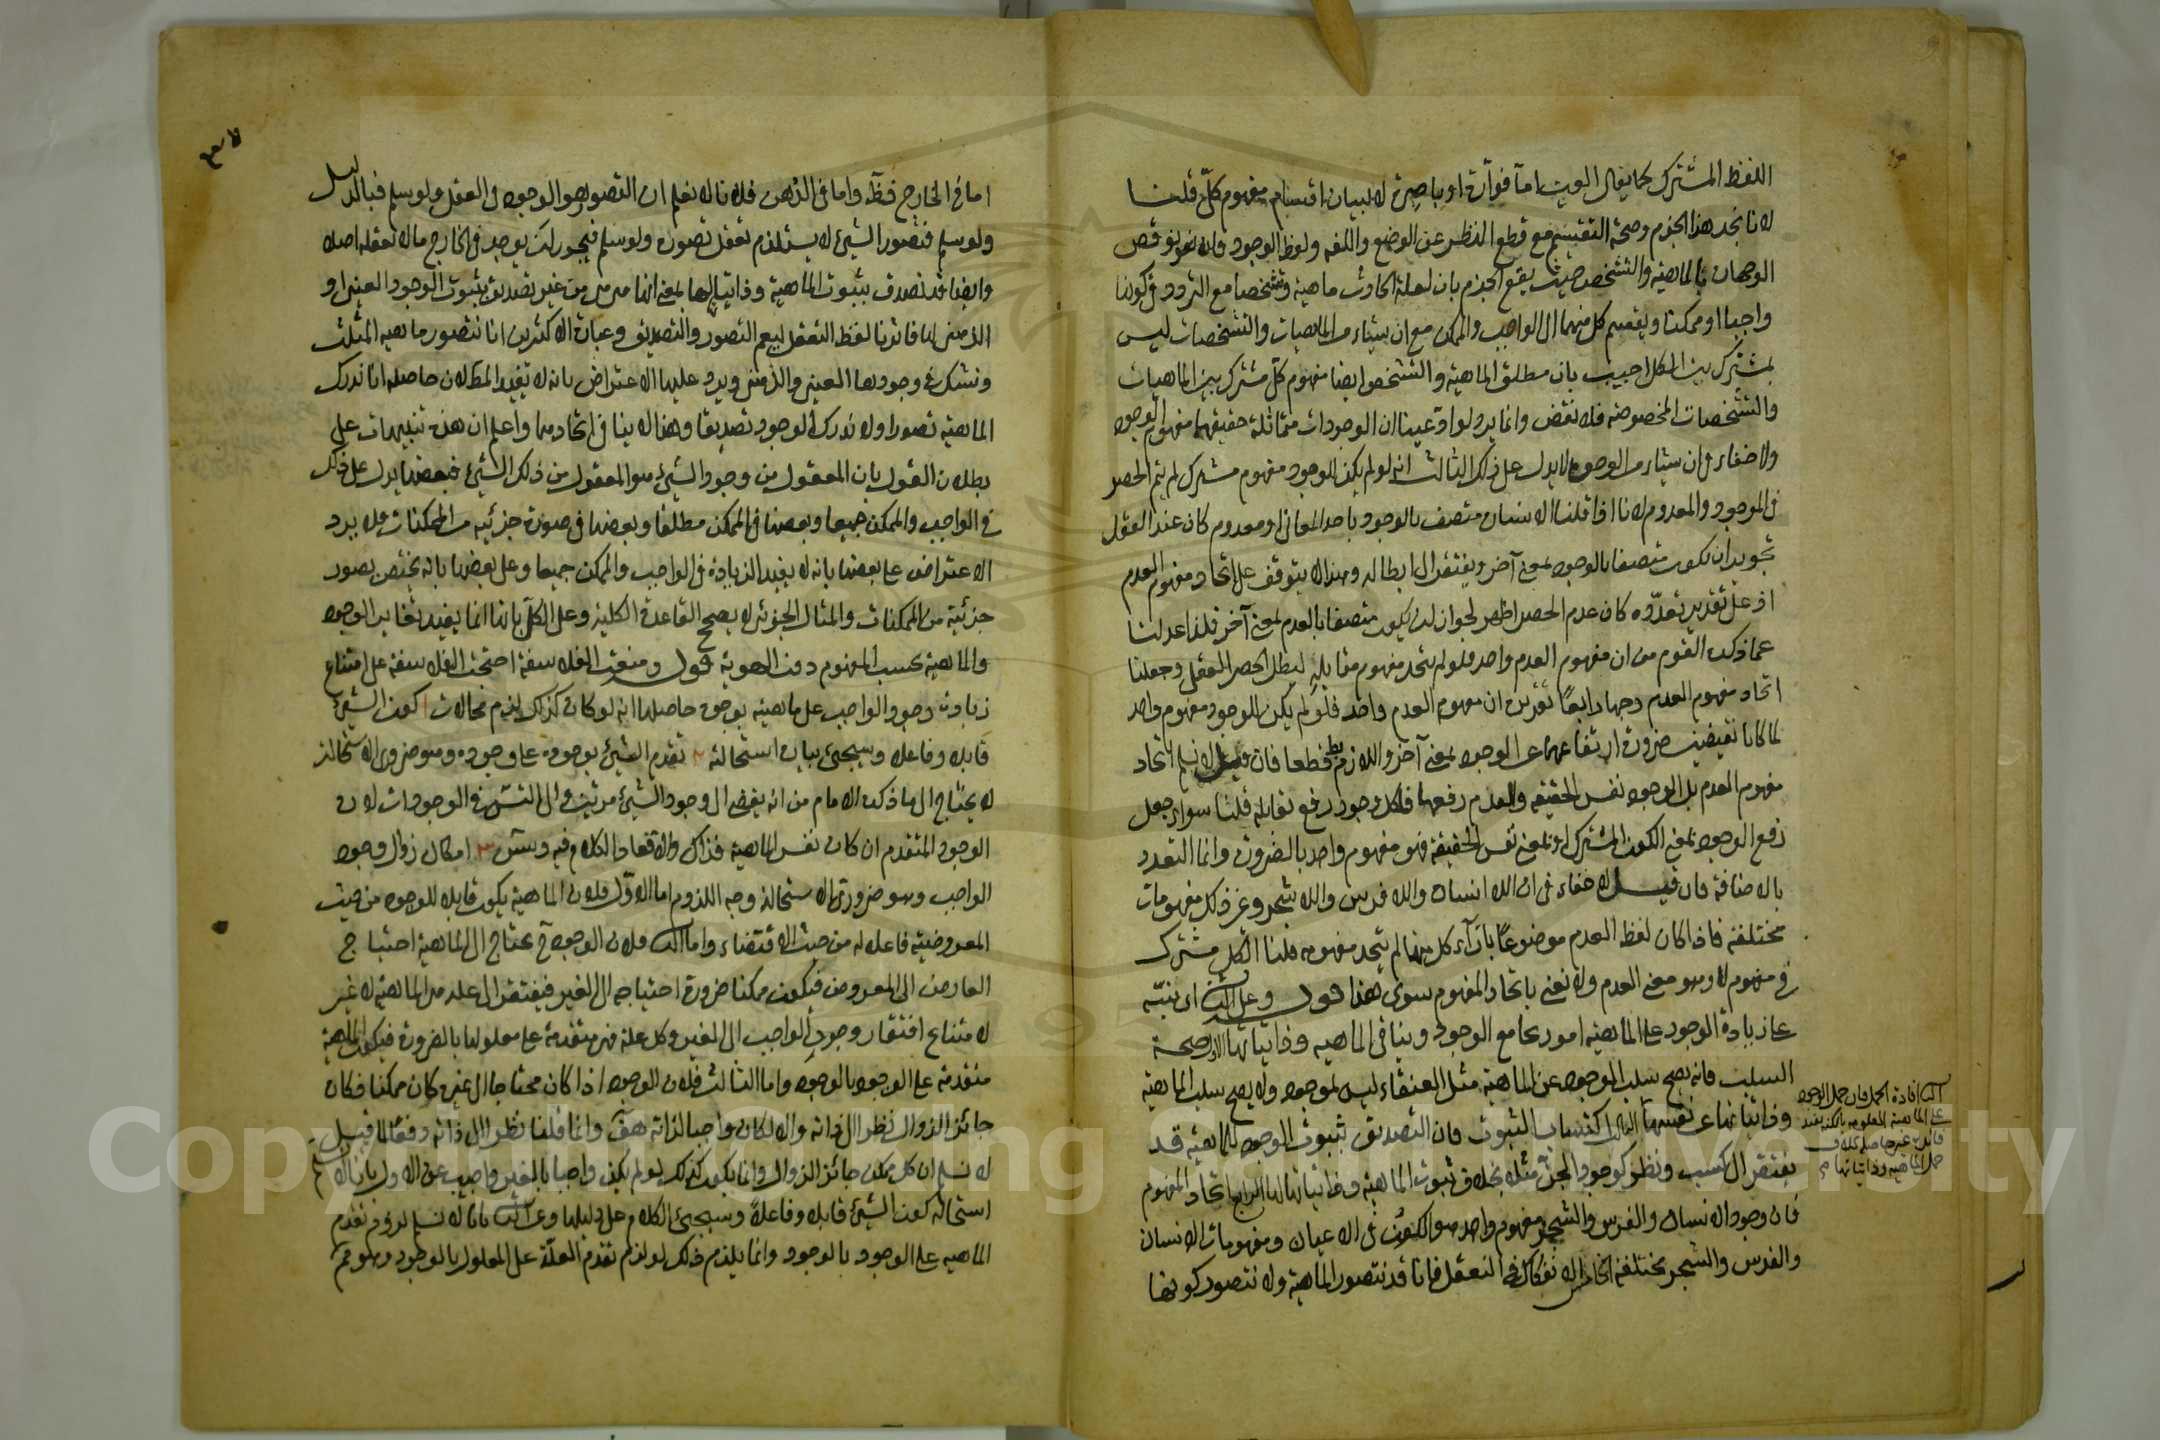 اللفظ المشترك كما يقال العين اما فوارة او باصرة لا لبيان اقسام مفهوم كلي قلنا
لانا نجد هذا الجزم وصحة التقسيم مع قطع النظر عن الوضع واللغة ولفظ الوجود فان نوقض
الوجهان بالماهية والتشخص حيث يقع الجزم بان لعلة الحادث ماهية وتشخصا مع التردد في كونها
واجبا او ممكنا ويقسم كل منهما الى الواجب والممكن مع ان شيئا من الماهيات والتشخصات ليس
بمشترك بين الكل اجيب بان مطلق الماهية والتشخص ايضا مفهوم كلي مشترك بين الماهيات
والتشخصات المخصوصة فلا نقض وانما يرد لو ادعينا ان الوجودات متماثلة حقيقتها مفهوم الوجود
ولا خفاء في ان شيئا من الوجوه لا يدل على ذلك الثالث انه لو لم يكن للوجود مفهوم مشترك لم يتم الحصر
في الموجود والمعدوم لانا اذا قلنا الانسان متصف بالوجود باحد المعاني او معدوم كان عند العقل
تجويز ان يكون متصفا بالوجود بمعنى آخر ويفتقر الى ابطاله وهذا لا يتوقف على اتحاد مفهوم العدم
اذ على تقدير تعدده كان عدم الحصر اظهر لجواز ان يكون متصفا بالعدم بمعنى آخر فلذا عدلنا
عما ذكره القوم من ان مفهوم العدم واحد فلو لم يتحد مفهوم مقابله لبطل الحصر العقلي وجعلنا
اتحاد مفهوم العدم وجها رابعا تقريره ان مفهوم العدم واحد فلو لم يكن للوجود مفهوم واحد
لما كانا نقيضين ضرورة ارتفاعهما عن الوجود بمعنى آخر واللازم بط قطعا فان قيل لا نسلم اتحاد
مفهوم العدم بل الوجود نفس الحقيقة والعدم رفعها فلكل وجود رفع تقابله قلنا سواء جعل
رفع الوجود بمعنى الكون المشترك او بمعنى نفس الحقيقة فهو مفهوم واحد بالضرورة وانما التعدد
بالاضافة فان قيل لا خفاء في ان اللا انسان واللا فرس واللا شجر وغير ذلك مفهومات
مختلفة فاذا كان لفظ العدم موضوعا بازاء كل منها لم يتحد مفهومه قلنا الكل مشترك
في مفهوم لا وهو معنى العدم ولا نعني باتحاد المفهوم سوى هذا قوله وعلى الثاني اي ينبه
على زيادة الوجود على الماهية امور تجامع الوجود وينافي الماهية وذاتياتها الاول صحة
السلب فانه يصح سلب الوجود عن الماهية مثل العنقاء ليس بموجود ولا يصح سلب الماهية
وذاتياتها عن نفسها الثالث اكتساب الثبوت فان التصديق بثبوت الوجود للماهية قد
يفتقر الى كسب ونظر كوجود الجن مثلا بخلاف ثبوت الماهية وذاتياتها لها الرابع اتحاد المفهوم
فان وجود الانسان والفرس والشجر مفهوم واحد هو الكون في الاعيان ومفهومات الانسان
والفرس والشجر مختلفة الخامس الانفكاك في التعقل فانا قد نتصور الماهية ولا نتصور كونها
الثاني افادة الحمل فان حمل الوجود
على الماهية المعلومة بالكنه يفيد
فائدة غير حاصلة بخلاف
حمل الماهية وذاتياتها
اما في الخارج فظ واما في الذهن فلانا لا نعلم ان التصور هو الوجود في العقل ولو سلم فبالدليل
ولو سلم فتصور الشيء لا يستلزم تعقل تصوره ولو سلم فيجوز ان يوجد في الخارج ما لا نعقله اصلا
وايضا قد نصدق بثبوت الماهية وذاتياتها لها بمعنى انها هي هي من غير تصديق بثبوت الوجود العيني او
الذهني لها فآثرنا لفظ التعقل ليعم التصور والتصديق وعبارة الاكثرين انا نتصور ماهية المثلث
ونشك في وجودها العيني والذهني ويرد عليها الاعتراض بانه لا يفيد المط لان حاصله انا ندرك
الماهية تصورا ولا ندرك الوجود تصديقا وهذا لا ينافي اتحادهما واعلم ان هذه تنبيهات على
بطلان القول بان المعقول من وجود الشيء هو المعقول من ذلك الشيء فبعضها يدل على ذلك
في الواجب والممكن جميعا وبعضها في الممكن مطلقا وبعضها في صورة جزئية من الممكنات فلا يرد
الاعتراض على بعضها بانه لا يفيد الزيادة في الواجب والممكن جميعا وعلى بعضها بانه يختص بصور
جزئية من الممكنات والمثال الجزئي لا يصحح القاعدة الكلية وعلى الكل بانها انما يفيد تغاير الوجود
والماهية بحسب المفهوم دون الهوية قوله ومنعت الفلاسفة احتجت الفلاسفة على امتناع
زيادة وجود الواجب على ماهيته بوجوه حاصلها انه لو كان كذلك لزم محالات ا كون الشيء
قابلا وفاعلا وسيجيء بيان استحالته ٢ تقدم الشيء بوجوده على وجوده وهو ضروري الاستحالة
لا يحتاج الى ما ذكره الامام من انه يفضي الى وجود الشيء مرتين والى التس في الوجودات لان
الوجود المتقدم ان كان نفس الماهية فذاك والا فعاد الكلام فيه وتس ٣ امكان زوال وجود
الواجب وهو ضروري الاستحالة وجه اللزوم اما الاول فلان الماهية يكون قابلا للوجود من حيث
المعروضية فاعلا له من حيث الاقتضاء واما الثاني فلان الوجود ح يحتاج الى الماهية احتياج
العارض الى المعروض فيكون ممكنا ضرورة احتياجه الى الغير فيفتقر الى علة هي الماهية لا غير
لامتناع افتقار وجود الواجب الى الغير وكل علة فهي متقدمة على معلولها بالضرورة فيكون الماهية
متقدمة على الوجود بالوجود واما الثالث فلان الوجود اذا كان محتاجا الى غيره كان ممكنا فكان
جائز الزوال نظرا الى ذاته والا لكان واجبا لذاته هف وانما قلنا نظرا الى ذاته دفعا لما قيل
لا نسلم ان كل ممكن جائز الزوال وانما يكون كذلك لو لم يكن واجبا بالغير واجيب عن الاول بانا لا نسلم
استحالة كون الشيء قابلا وفاعلا وسيجيء الكلام على دليلها وعن الثاني بانا لا نسلم لزوم تقدم
الماهية على الوجود بالوجود وانما يلزم ذلك لو لزم تقدم العلة على المعلول بالوجود وهو مم
Copyright © King Saud University